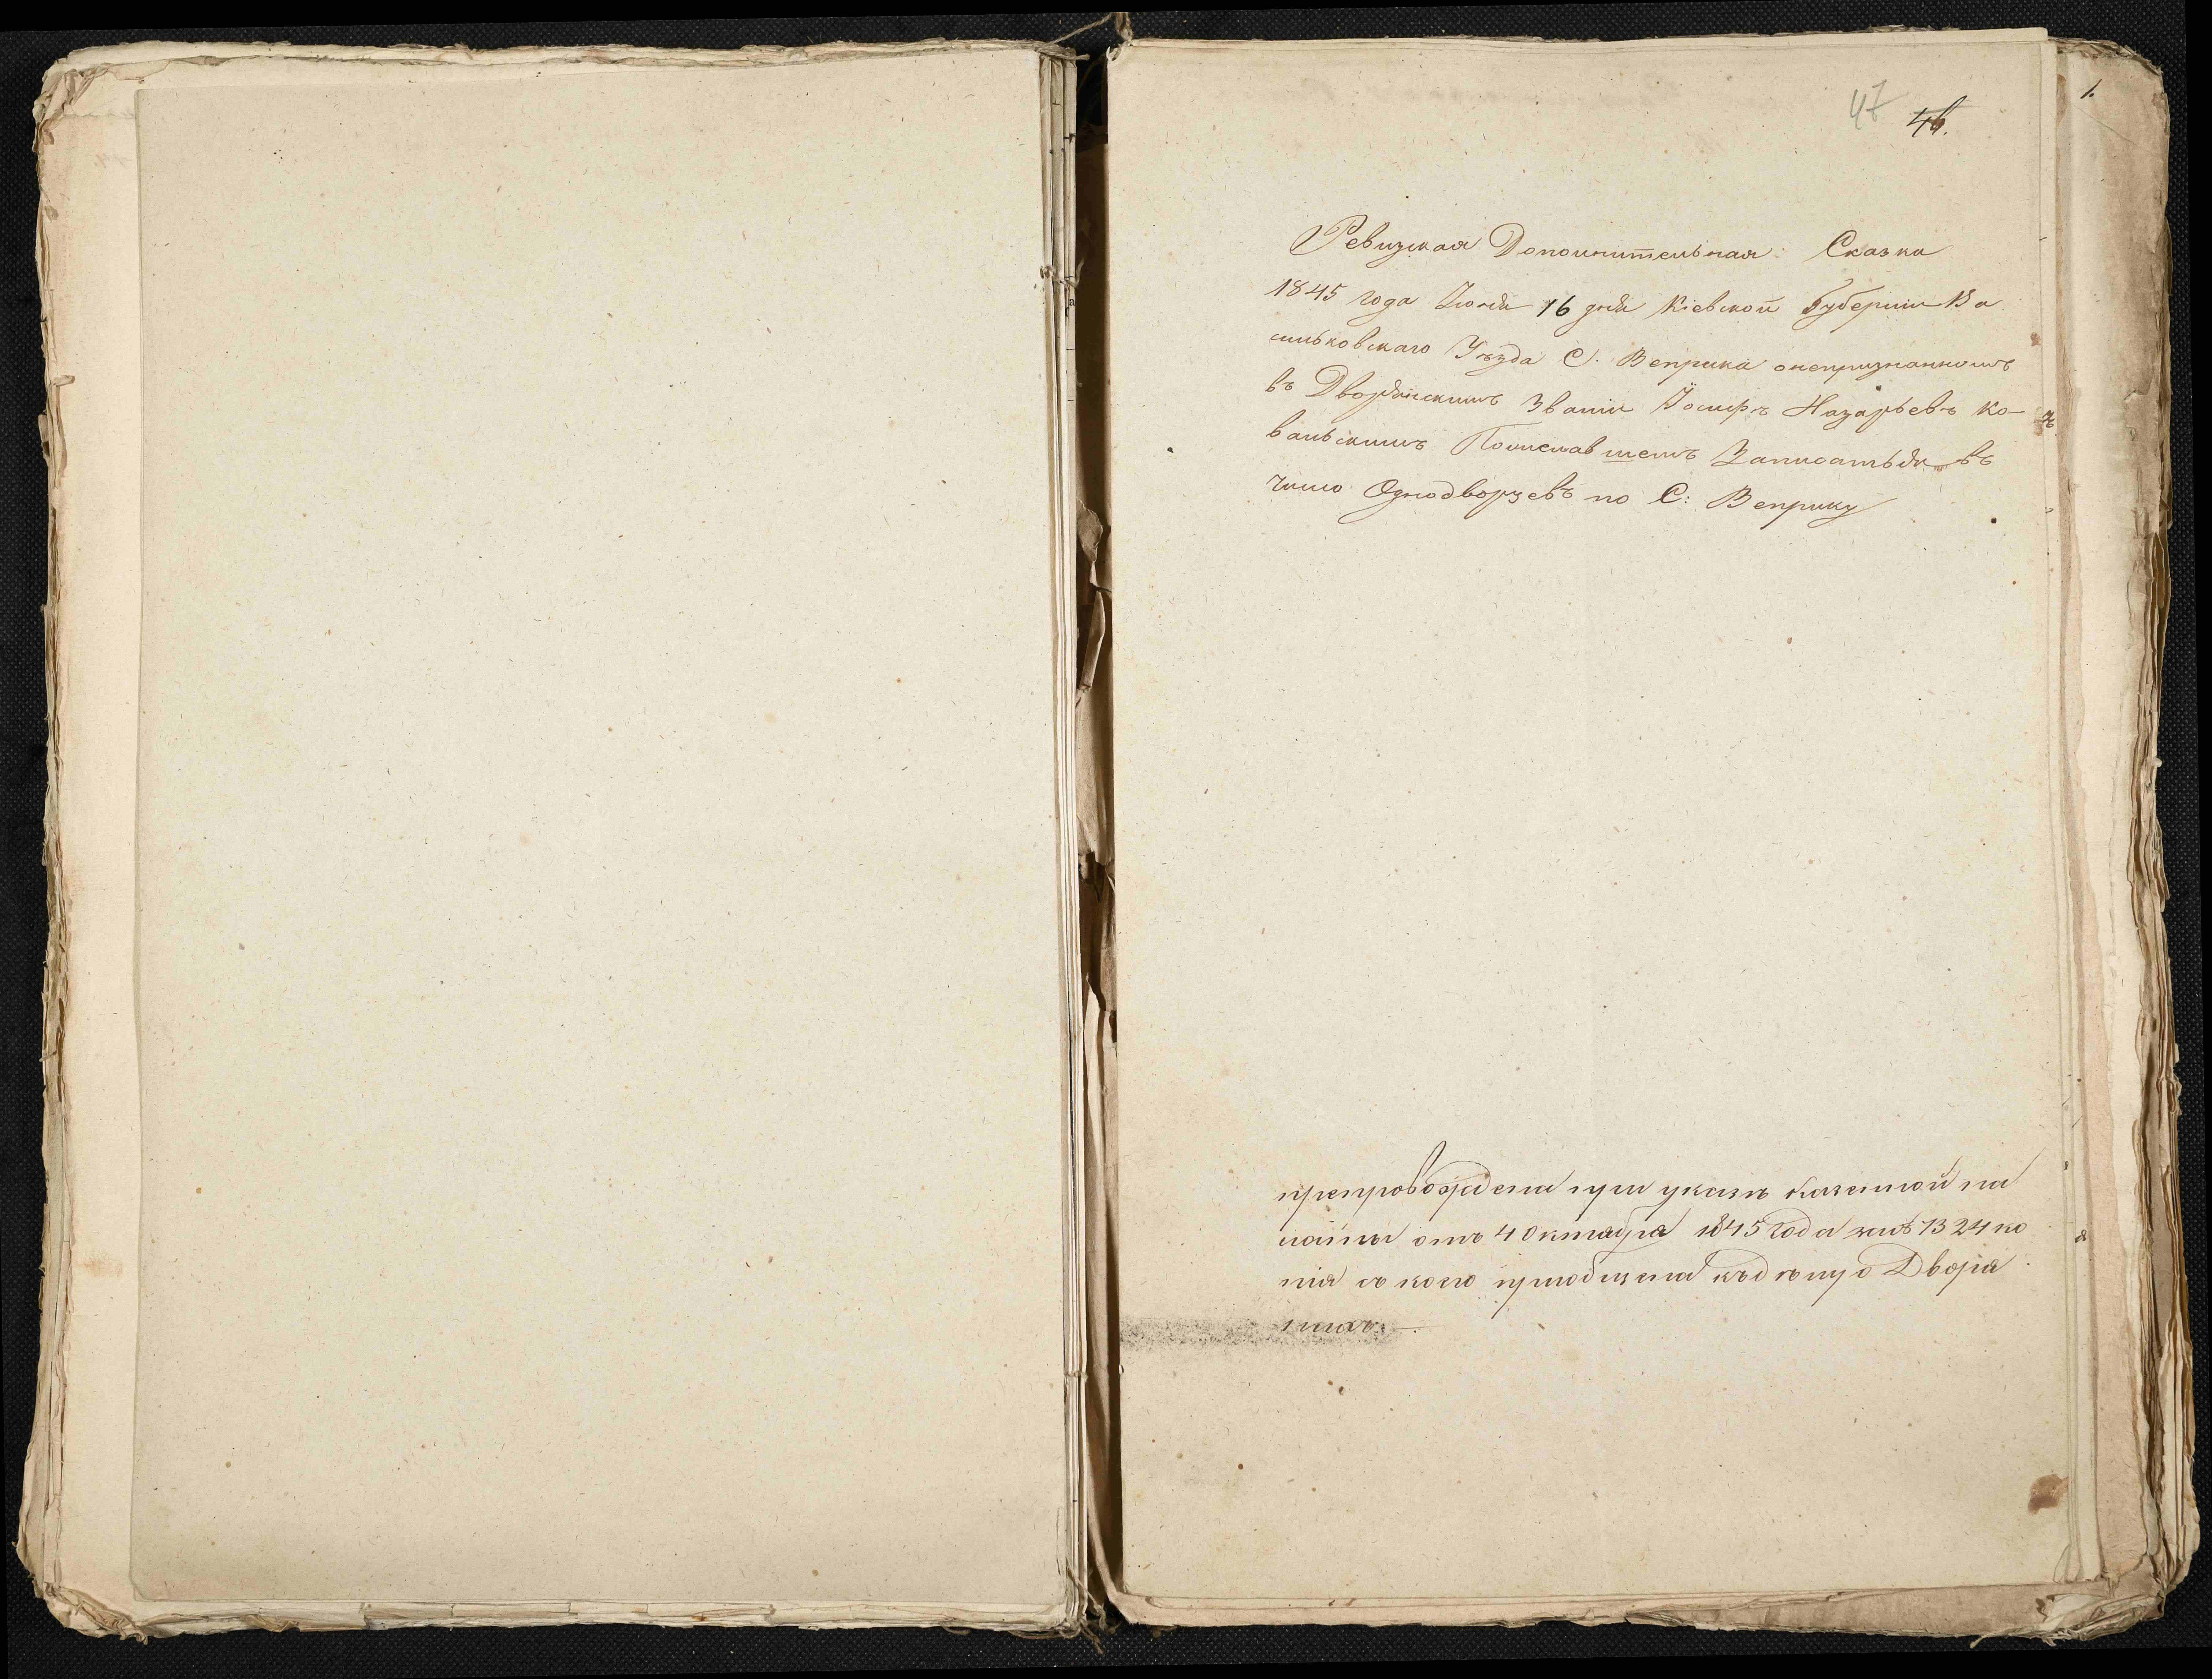 47 46.
Ревизская Дополнительная Сказка
1845 года Июля 16 дня Кіевской Губерніи Ва
сильковскаго Уѣзда С. Веприка онепризнанномъ
въ Дворянскимъ Званіи Іосифъ Назарьевъ Ко-
вальскимъ Пожелавшемъ Записаться въ
число Однодворцевъ по С: Веприку
препровождена при указѣ казенной па
латы отъ 4 Октября 1845 года за № 1324 ко
пія съ коего пріобщена къ дѣлу о Дворя
нахъ.